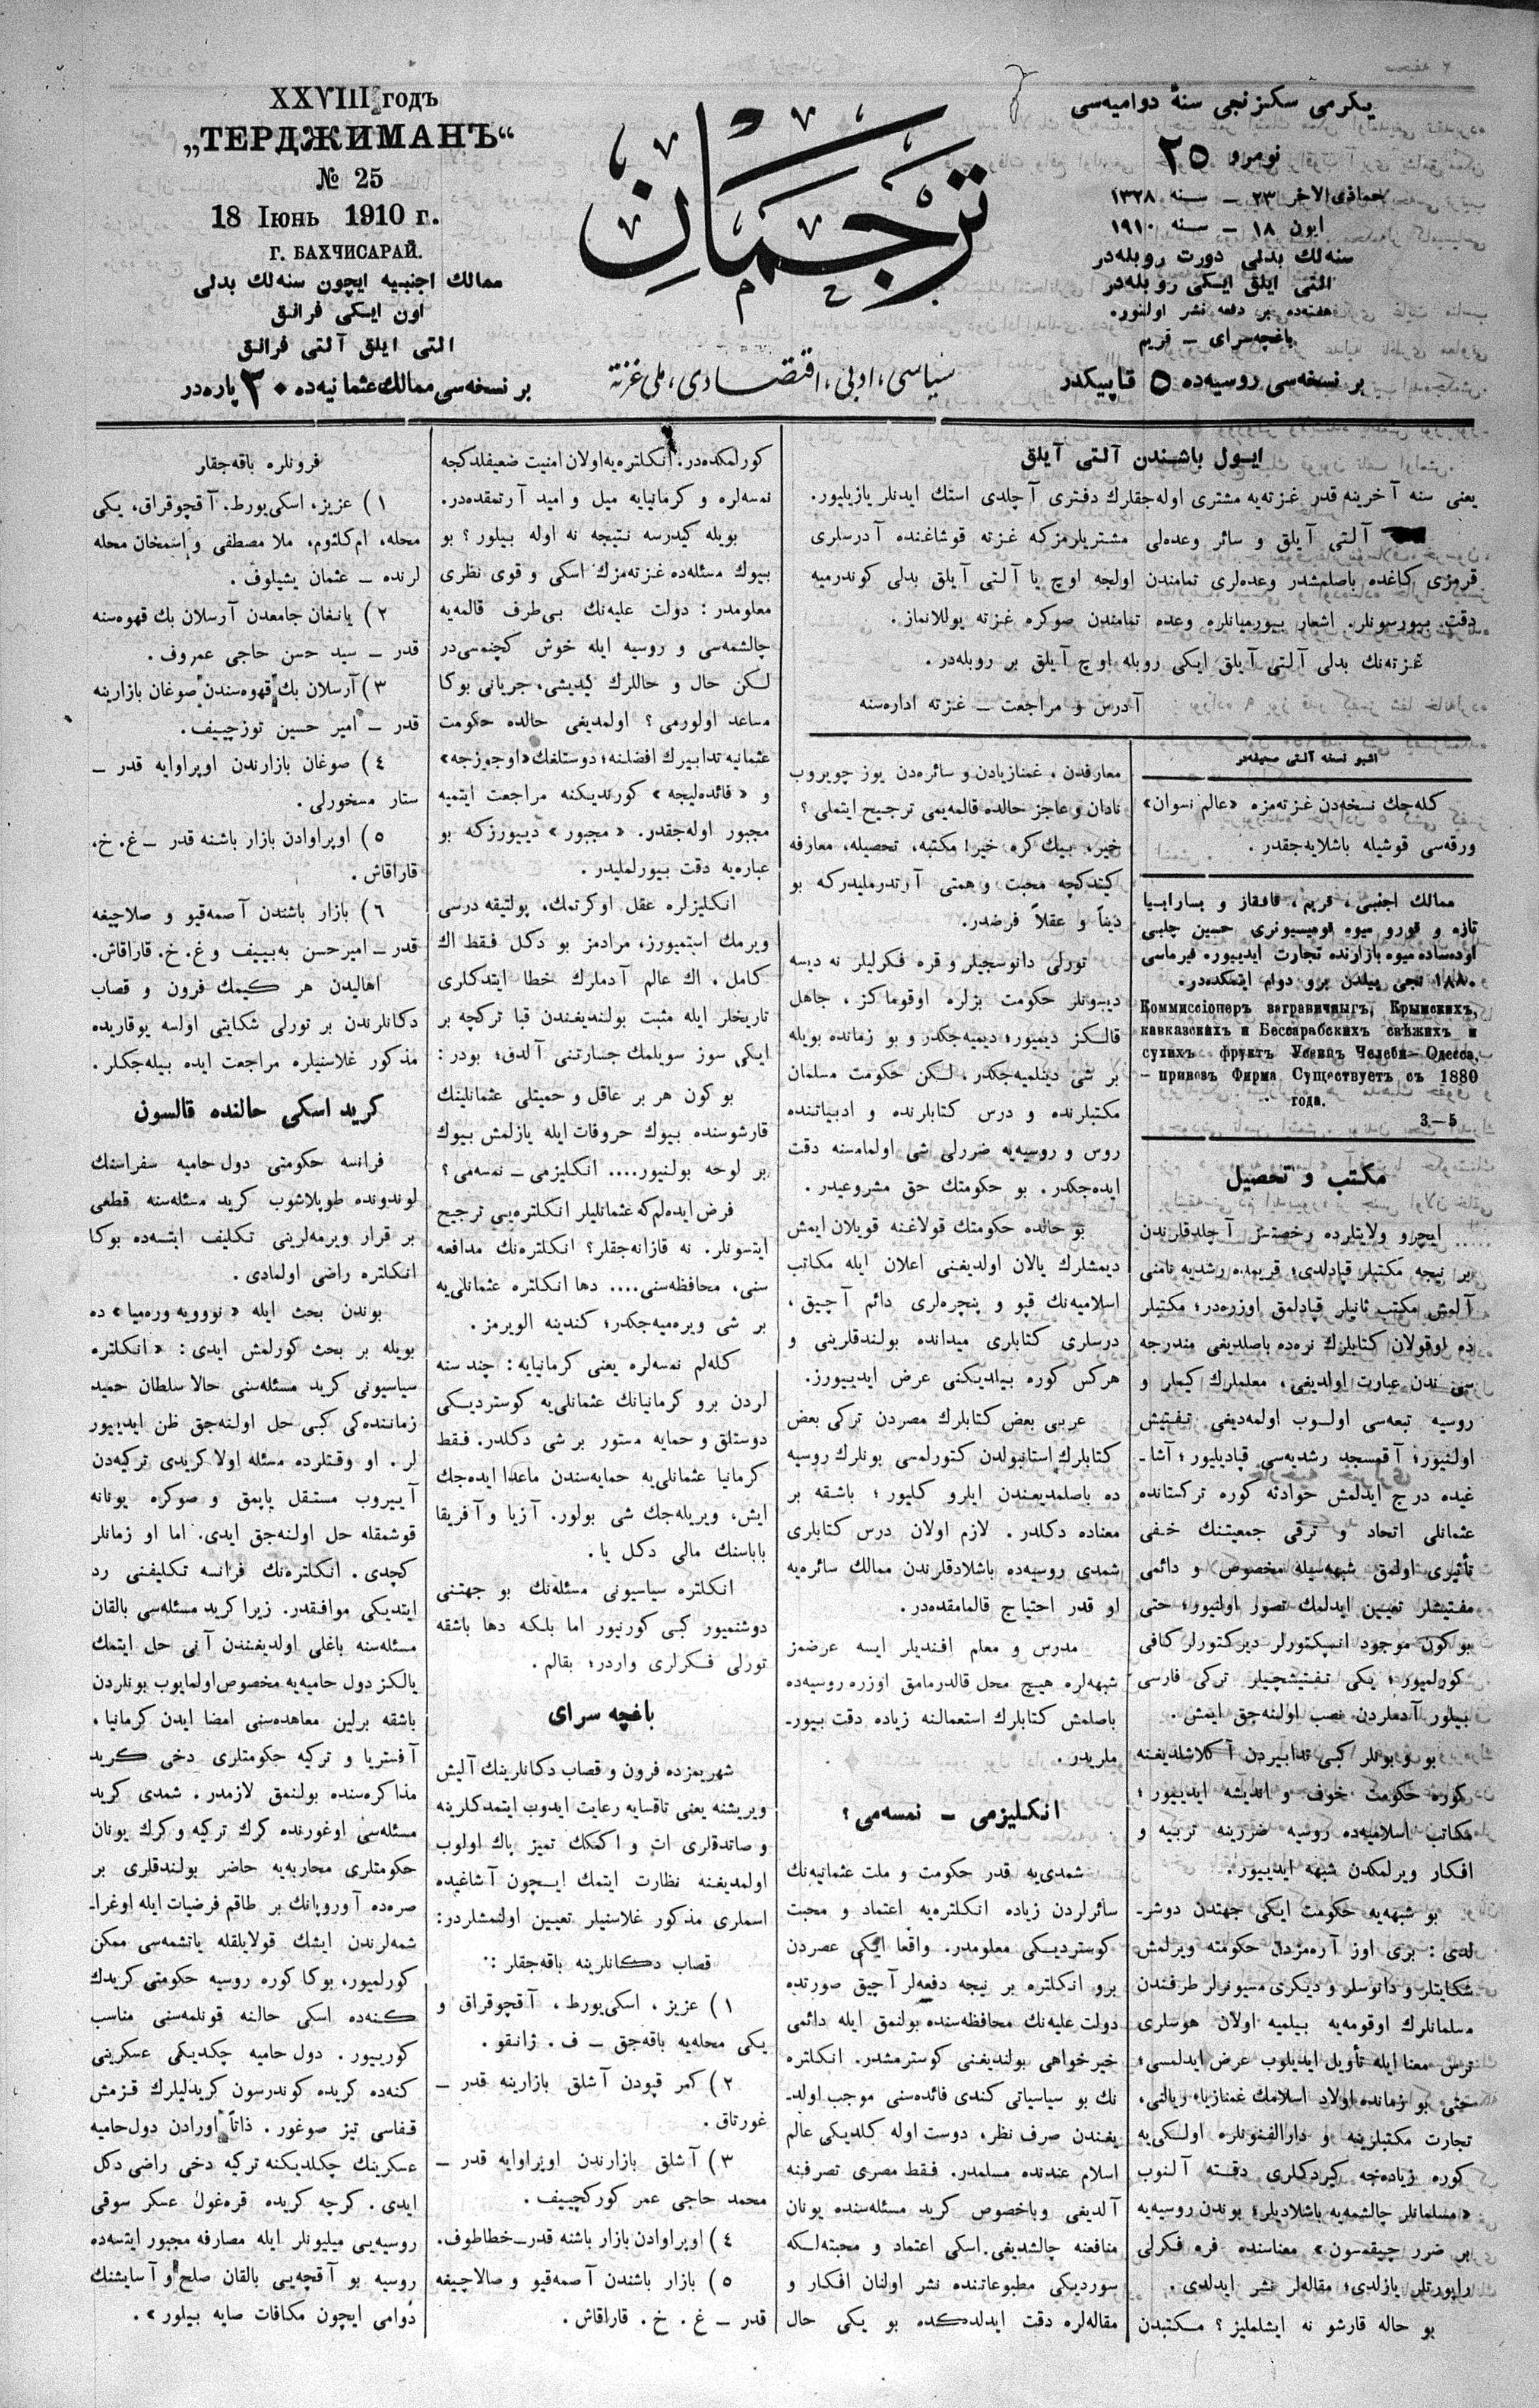 XXVIII годъ
„ТЕРДЖИМАНЪ“
№ 25
18 Іюнь 1910 г.
Г. БАХЧИСАРАЙ.
ممالك اجنبیه ایچون سنه‌لك بدلی
اون ایكی فرانق
التی ایلق آلتی فرانق
بر نسخه‌سی ممالك عثمانیه‌ده ۳۰ پاره‌در
ترجمان
سیاسی، ادبی، اقتصادی، ملی غزته
یكرمی سكزنجی سنهٔ دوامیه‌سی
نومرو ۲۵
جماذی الاخر ۲۳ – سنه ۱۳۲۸
ایون ۱۸ – سنه ۱۹۱۰
سنه‌لك بدلی دورت روبله‌در
التی ایلق ایكی روبله‌در
هفته‌ده بر دفعه نشر اولنور.
باغچه‌سرای – قریم
بر نسخه‌سی روسیه‌ده ۵ قاپیكدر
ایول باشندن آلتی آیلق
یعنی سنه آخرینه قدر غزته‌یه مشتری اوله‌جقلرك دفتری آچلدی استك ایدنلر یازیلیور.
آلتی آیلق و سائر وعده‌لی مشتریلرمزكه غزته قوشاغنده آدرسلری
قرمزی كاغده باصلمشدر وعده‌لری تمامندن اولجه اوچ یا آلتی آیلق بدلی كوندرمیه
دقت بیورسونلر. اشعار بیورمیانلره وعده تمامندن صوكره غزته یوللانماز.
غزته‌نك بدلی آلتی آیلق ایكی روبله اوچ آیلق بر روبله‌در.
آدرس و مراجعت – غزته اداره‌سنه
اشبو نسخه آلتی صحیفه‌در
كله‌جك نسخه‌دن غزته‌مزه «عالم نسوان»
ورقه‌سی قوشیله باشلایه‌جقدر.
ممالك اجنبی، قریم، قافقاز و بسارابیا
تازه و قورو میوه قومیسیونری حسین چلبی
اوده‌ساده میوه بازارنده تجارت ایدییوره فیرماسی
۱۸۸۰ نجی ییلدن برو دوام ایتمكده‌در.
Коммиссіонеръ заграничныгъ, Крымскихъ,
кавказскихъ и Бессарабскихъ свѣжихъ и
сухихъ фруктъ Усеинъ Челеби—Одесса,
— привозъ Фирма Существуетъ съ 1880
года.
3—5
مكتب و تحصیل
ایچرو ولایتلرده رخصتسز آچلدقلرندن
بر نیجه مكتبلر قپادلدی؛ قریمده رشدیه نامنی
آلمش مكتب ثانیلر قپادلمق اوزره‌در؛ مكتبلر
ده اوقولان كتابلرك نره‌ده باصلدیغی مندرجه
سی ندن عبارت اولدیغی، معلملرك كیملر و
روسیه تبعه‌سی اولوب اولمه‌دیغی تفتیش
اولنیور؛ آقمسجد رشدیه‌سی قپادیلیور؛ آشا–
غیده درج ایدلمش حوادثه كوره تركستانده
عثمانلی اتحاد و ترقی جمعیتنك خفی
تأثیری اولمق شبهه‌سیله مخصوص و دائمی
مفتیشلر تعیین ایدلمك تصور اولنیور؛ حتی
بوكون موجود انسپكتورلر دیركتورلر كافی
كورلمیور؛ یكی تفتیشچیلر تركی فارسی
بیلور آدملردن نصب اولنه‌جق ایمش.
بو و بونلر كبی تدابیردن آكلاشلدیغنه
كوره حكومت خوف و اندیشه ایدییور؛
مكاتب اسلامیه‌ده روسیه ضررینه تربیه و
افكار ویرلمكدن شبهه ایدییور.
بو شبهه‌یه حكومت ایكی جهتدن دوشر–
لدی: بری اوز آره‌مزدن حكومته ویرلمش
شكایتلر و دانوسلر و دیكری مسیونرلر طرفندن
مسلمانلرك اوقومه‌یه بیلمیه اولان هوسلری
ترس معنا ایله تأویل ایدیلوب عرض ایدلمسی؛
حتی بو زمانده اولاد اسلامك غمنازیا، ریالنی،
تجارت مكتبلرینه و دارالفنونلره اولكی‌یه
كوره زیاده‌جه كیردكلری دقته آلنوب
«مسلمانلر چالشمه‌یه باشلادیلر؛ بوندن روسیه‌یه
بر ضرر چیقمسون» معناسنده قره فكرلی
راپورتلر یازلدی؛ مقاله‌لر نشر ایدلدی.
بو حاله قارشو نه ایشلملیز؟ مكتبدن
معارفدن، غمنازیادن و سائره‌دن یوز چویروب
نادان و عاجز حالده قالمه‌یمی ترجیح ایتملی؟
خیر، بیك كره خیر! مكتبه، تحصیله، معارفه
كیتدكچه محبت و همتی آرتدرملیدركه بو
دیناً و عقلاً فرضدر.
تورلی دانوسجیلر و قره فكرلیلر نه دیسه
دیسونلر حكومت بزلره اوقوماكز، جاهل
قالكز دیمیور؛ دیمیه‌جكدر و بو زمانده بویله
بر شی دینلمیه‌جكدر. لكن حكومت مسلمان
مكتبلرنده و درس كتابلرنده و ادبیاتنده
روس و روسیه‌یه ضررلی شی اولمامسنه دقت
ایده‌جكدر. بو حكومتك حق مشروعیدر.
بو حالده حكومتك قولاغنه قویلان ایمش
دیمشلرك یالان اولدیغنی اعلان ایله مكاتب
اسلامیه‌نك قپو و پنچره‌لری دائم آچیق،
درسلری كتابلری میدانده بولندقلرینی و
هركس كوره بیلدیكنی عرض ایدییورز.
عربی بعض كتابلرك مصردن تركی بعض
كتابلرك استانبولدن كتورلمسی بونلرك روسیه
ده باصلمدیعندن ایلرو كلیور؛ باشقه بر
معناده دكلدر. لازم اولان درس كتابلری
شمدی روسیه‌ده باشلادقلرندن ممالك سائره‌یه
او قدر احتیاج قالمامقده‌در.
مدرس و معلم افندیلر ایسه عرضمز
شبهه‌لره هیچ محل قالدرمامق اوزره روسیه‌ده
باصلمش كتابلرك استعمالنه زیاده دقت بیور–
ملریدر.
انكلیزمی – نمسه‌می؟
شمدی‌یه قدر حكومت و ملت عثمانیه‌نك
سائرلردن زیاده انكلتره‌یه اعتماد و محبت
كوستردیكی معلومدر. واقعا ایكی عصردن
برو انكلتره بر نیجه دفعه‌لر آچیق صورتده
دولت علیه‌نك محافظه‌سنده بولنمق ایله دائمی
خیرخواهی بولندیغنی كوسترمشدر. انكلتره
نك بو سیاسیاتی كندی فائده‌سنی موجب اولد–
یغندن صرف نظر، دوست اوله كلدیكی عالم
اسلام عندنده مسلمدر. فقط مصری تصرفینه
آلدیغی وباخصوص كرید مسئله‌سنده یونان
منافعنه چالشدیغی. اسكی اعتماد و محبته‌لكه
سوردیكی مطبوعاتنده نشر اولنان افكار و
مقاله‌لره دقت ایدلدكده بو یكی حال
كورلمكده‌در. انكلتره‌یه اولان امنیت ضعیفلدكجه
نمسه‌لره و كرمانیایه میل و امید آرتمقده‌در.
بویله كیدرسه نتیجه نه اوله بیلور؟ بو
بیوك مسئله‌ده غزته‌مزك اسكی و قوی نظری
معلومدر: دولت علیه‌نك بی‌طرف قالمه‌یه
چالشمه‌سی و روسیه ایله خوش كچنمه‌سی‌در
لكن حال و حاللرك كیدیشی، جریانی بوكا
مساعد اولورمی؟ اولمدیغی حالده حكومت
عثمانیه تدابیرك افضلنه؛ دوستلغك «اوجوزجه»
و «فائده‌لیجه» كورندیكنه مراجعت ایتمیه
مجبور اوله‌جقدر. «مجبور» دییورزكه بو
عباره‌یه دقت بیورلملیدر.
انكلیزلره عقل اوكرتمك، پولتیقه درسی
ویرمك استمیورز، مرادمز بو دكل فقط اك
كامل، اك عالم آدملرك خطا ایتدكلری
تاریخلر ایله مثبت بولندیغندن قبا تركچه بر
ایكی سوز سویلمك جسارتنی آلدق؛ بودر:
بو كون هر بر عاقل و حمیتلی عثمانلینك
قارشوسنده بیوك حروفات ایله یازلمش بیوك
بر لوحه بولنیور.... انكلیزمی – نمسه‌می؟
فرض ایده‌لم كه عثمانلیلر انكلتره‌یی ترجیح
ایتسونلر. نه قازانه‌جقلر؟ انكلتره‌نك مدافعه
سنی، محافظه‌سنی.... دها انكلتره عثمانلی‌یه
بر شی ویره‌میه‌جكدر؛ كندینه الویرمز.
كله‌لم نمسه‌لره یعنی كرمانیایه: چند سنه
لردن برو كرمانیانك عثمانلی‌یه كوستردیكی
دوستلق و حمایه مستور بر شی دكلدر. فقط
كرمانیا عثمانلی‌یه حمایه‌سندن ماعدا ایده‌جك
ایش، ویریله‌جك شی بولور. آزیا و آفریقا
باباسنك مالی دكل یا.
انكلتره سیاسیونی مسئله‌نك بو جهتنی
دوشنمیور كبی كورنیور اما بلكه دها باشقه
تورلی فكرلری واردر؛ بقالم.
باغچه سرای
شهریمزده فرون و قصاب دكانلرینك آلیش
ویریشنه یعنی تاقسایه رعایت ایدوب ایتمدكلرینه
و صاتدقلری ات و اكمكك تمیز پاك اولوب
اولمدیغنه نظارت ایتمك ایچون آشاغیده
اسملری مذكور غلاسنیلر تعیین اولنمشلردر:
قصاب دكانلرینه باقه‌جقلر:
۱) عزیز، اسكی‌یورط، آقچوقراق و
یكی محله‌یه باقه‌جق – ف. ژانقو.
۲) كمر قپودن آشلق بازارینه قدر –
غورتاق.
۳) آشلق بازارندن اوپراوایه قدر –
محمد حاجی عمر كوركچییف.
۴) اوپراوادن بازار باشنه قدر – خطاطوف.
۵) بازار باشندن آصمه‌قیو و صالاچیغه
قدر – غ. خ. قاراقاش.
فرونلره باقه‌جقلر
۱) عزیز، اسكی‌یورط، آقچوقراق، یكی
محله، ام‌كلثوم، ملا مصطفی و اسمخان محله
لرنده – عثمان یشیلوف.
۲) یانغان جامعدن آرسلان بك قهوه‌سنه
قدر – سید حسن حاجی عمروف.
۳) آرسلان بك قهوه‌سندن صوغان بازارینه
قدر – امیر حسین توزچییف.
۴) صوغان بازارندن اوپراوایه قدر –
ستار مسخورلی.
۵) اوپراوادن بازار باشنه قدر – غ. خ.
قاراقاش.
۶) بازار باشندن آصمه‌قیو و صلاچیغه
قدر – امیرحسن به‌ییف و غ. خ. قاراقاش.
اهالیدن هر كیمك فرون و قصاب
دكانلرندن بر تورلی شكایتی اولسه یوقاریده
مذكور غلاسنیلره مراجعت ایده بیله‌جكلر.
كرید اسكی حالنده قالسون
فرانسه حكومتی دول حامیه سفراسنك
لوندونده طوپلاشوب كرید مسئله‌سنه قطعی
بر قرار ویرمه‌لرینی تكلیف ایتسه‌ده بوكا
انكلتره راضی اولمادی.
بوندن بحث ایله «نوویه وره‌میا» ده
بویله بر بحث كورلمش ایدی: «انكلتره
سیاسیونی كرید مسئله‌سنی حالا سلطان حمید
زماننده‌كی كبی حل اولنه‌جق ظن ایدییور
لر. او وقتلرده مسئله اولا كریدی تركیه‌دن
آییروب مستقل یاپمق و صوكره یونانه
قوشمقله حل اولنه‌جق ایدی. اما او زمانلر
كچدی. انكلتره‌نك فرانسه تكلیفنی رد
ایتدیكی موافقدر. زیرا كرید مسئله‌سی بالقان
مسئله‌سنه باغلی اولدیغندن آنی حل ایتمك
یالكز دول حامیه‌یه مخصوص اولمایوب بونلردن
باشقه برلین معاهده‌سنی امضا ایدن كرمانیا،
آفستریا و تركیه حكومتلری دخی كرید
مذاكره‌سنده بولنمق لازمدر. شمدی كرید
مسئله‌سی اوغورنده كرك تركیه و كرك یونان
حكومتلری محاربه‌یه حاضر بولندقلری بر
صره‌ده آوروپانك بر طاقم فرضیات ایله اوغرا–
شمه‌لرندن ایشك قولایلقله یاتشمه‌سی ممكن
كورلمیور، بوكا كوره روسیه حكومتی كریدك
كنه‌ده اسكی حالنه قونلمه‌سنی مناسب
كورییور. دول حامیه چكدیكی عسكرینی
كنه‌ده كریده كوندرسون كریدلیلرك قزمش
قفاسی تیز صوغور. ذاتاً اورادن دول حامیه
عسكرینك چكلدیكنه تركیه دخی راضی دكل
ایدی. كرچه كریده قره‌غول عسكر سوقی
روسیه‌یی میلیونلر ایله مصارفه مجبور ایتسه‌ده
روسیه بو آقچه‌یی بالقان صلح و آسایشنك
دوامی ایچون مكافات صایه بیلور».